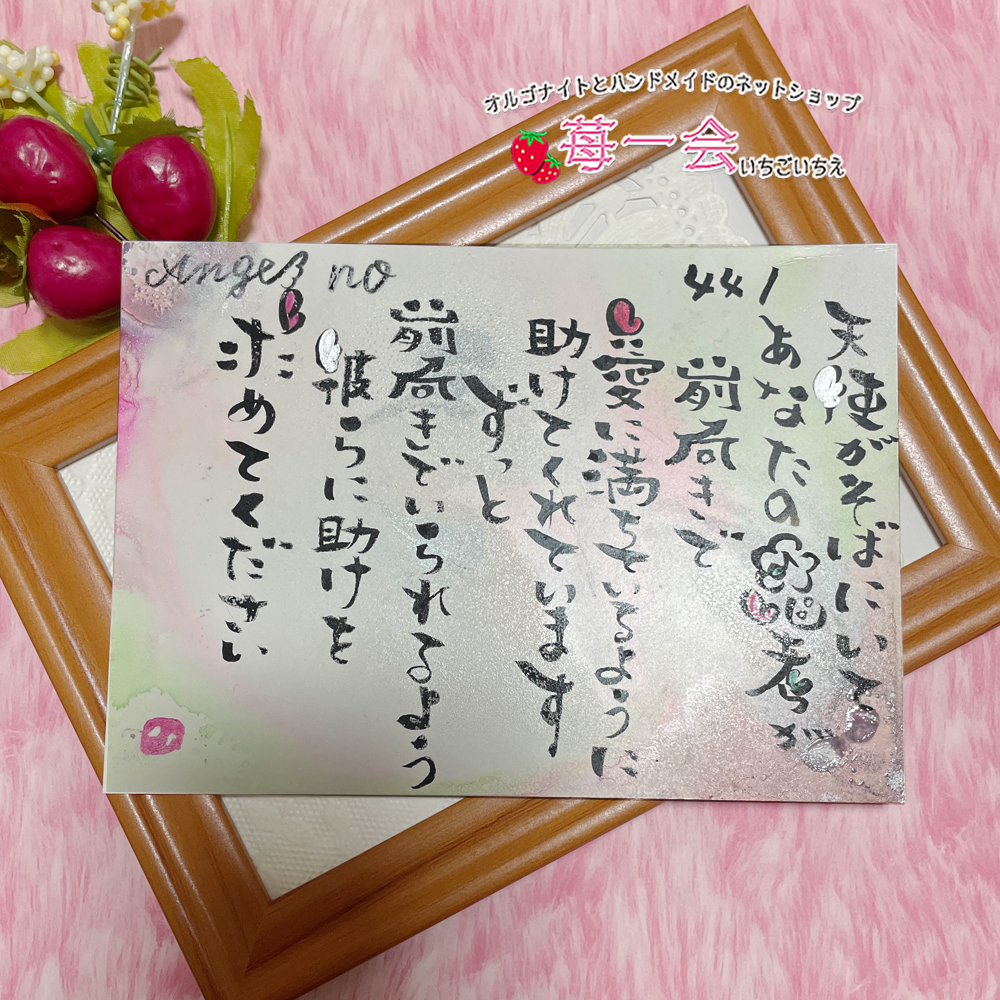 オルゴナイトとハンドメイドのネットショップ
苺一会
いちごいちえ
Angel no
441
天使がそばにいて
あなたの思考が
前向きで
愛に満ちているように
助けてくれています
ずっと
前向きでいられるよう
彼らに助けを
求めてください